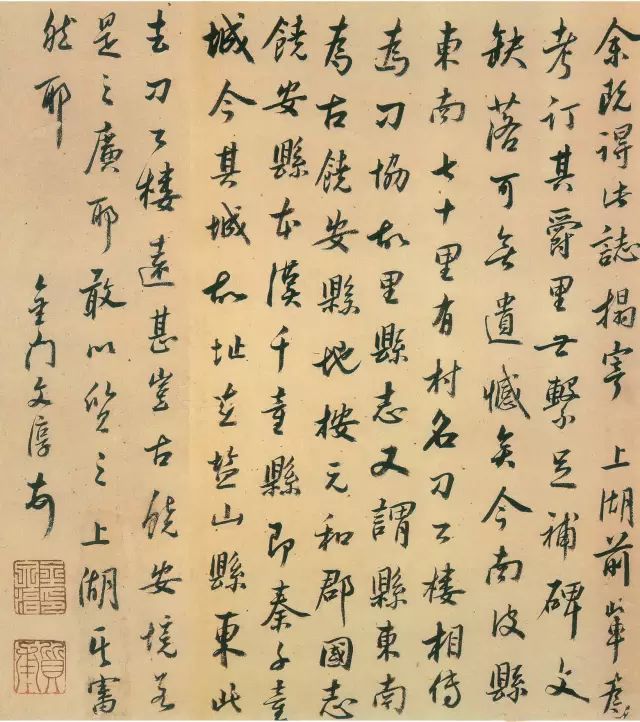 余既得此誌搨寄 上湖前輩
考訂其爵里世繫足補碑文
缺落可無遺憾矣今南皮縣
東南七十里有村名刀公樓相傳
為刀協故里縣志又謂縣東南
為古饒安縣地按元和郡國志
饒安縣本漢千童縣即秦千童
城今其城故址在盐山縣東此
去刀公樓遠甚豈古饒安境若
是之廣耶敢以質之上湖其審
然耶
金门文淳